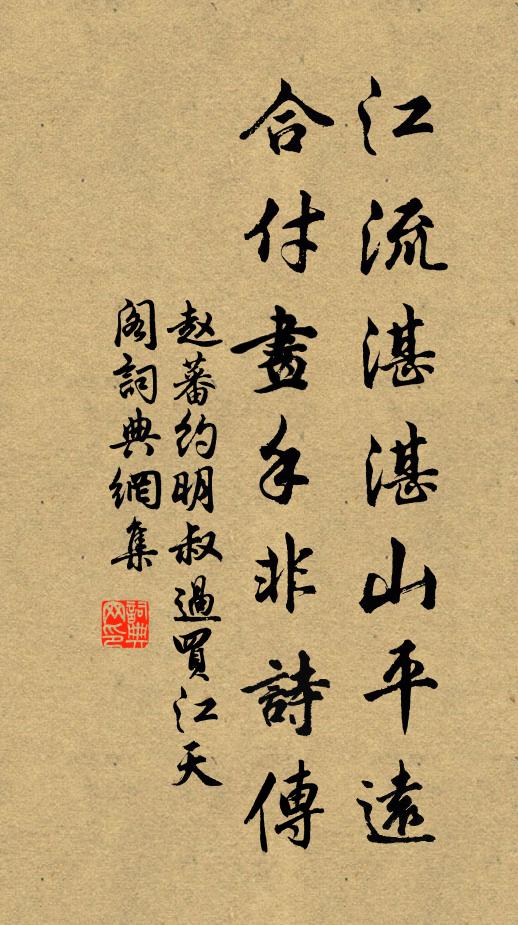 江流湛湛山平遠
合付畫手非詩傳
赵蕃约明叔過買江天
阁詞典網集
詞典網印